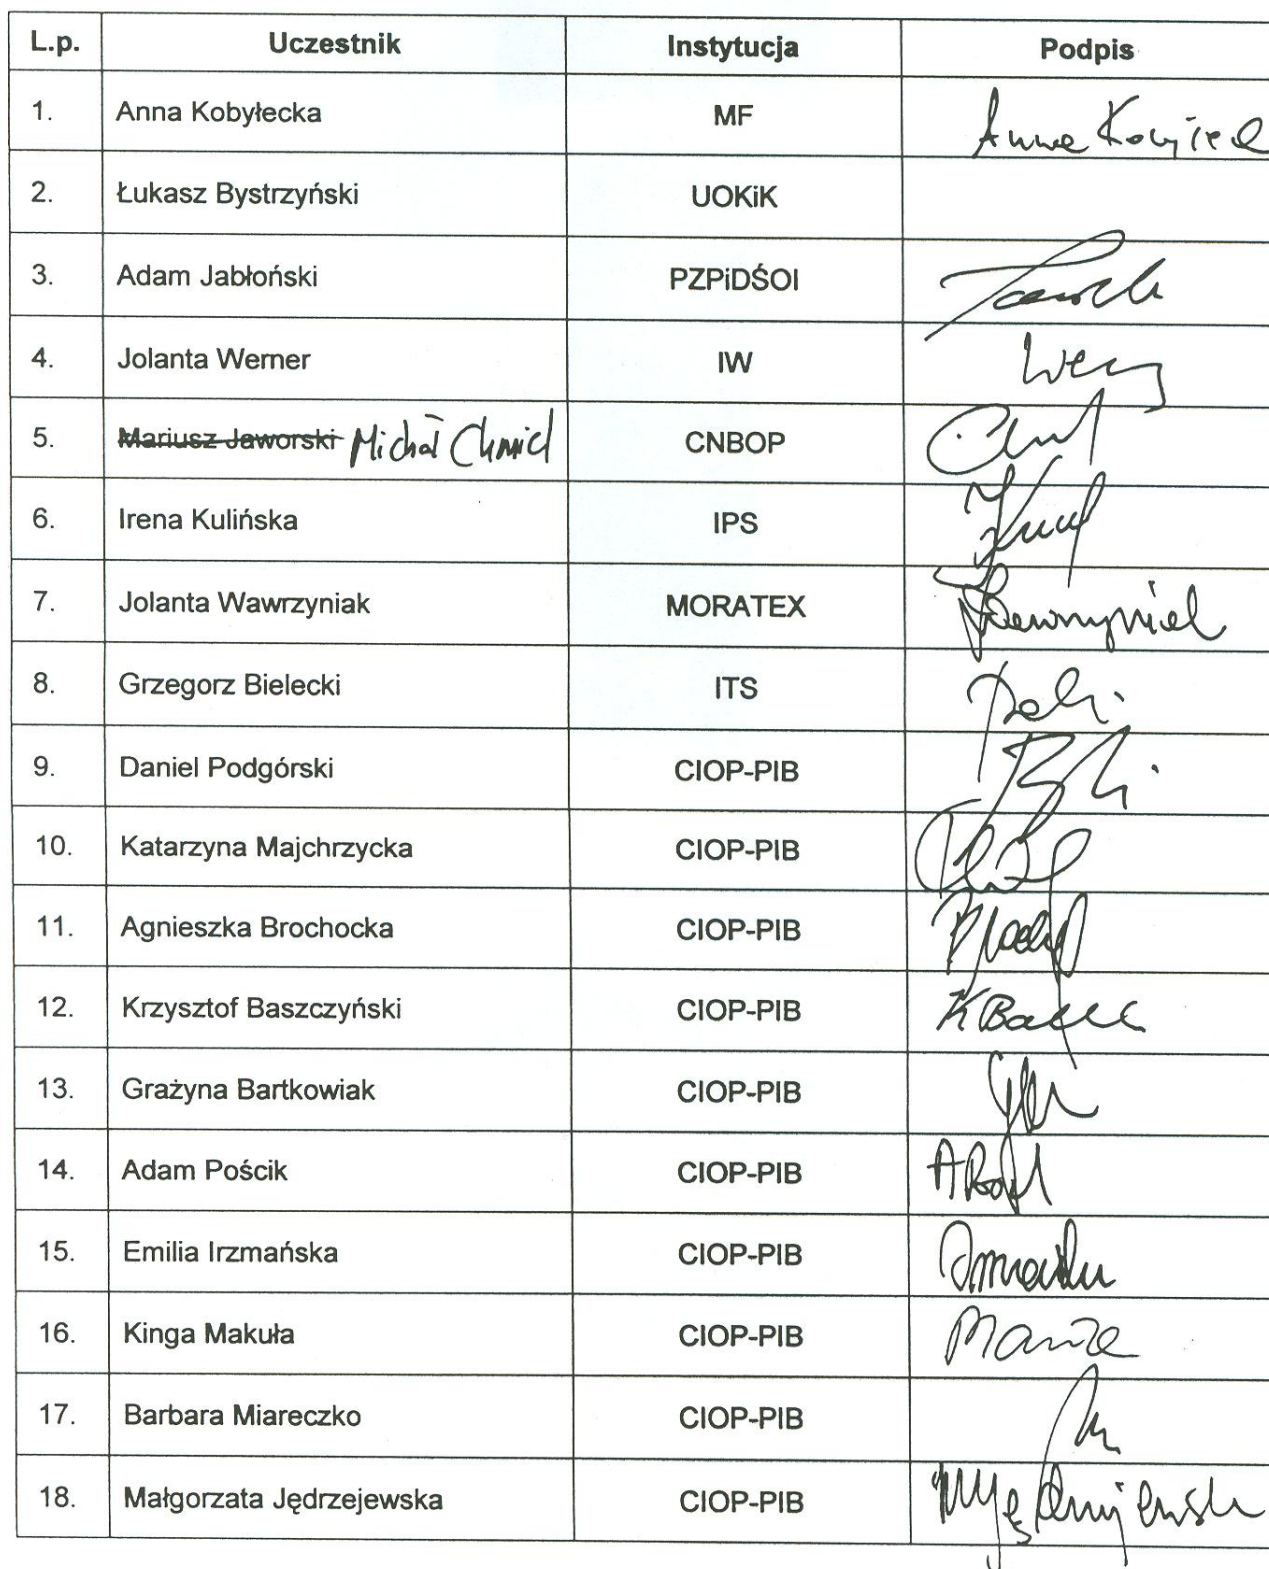 L.p. Uczestnik Instytucja Podpis
1. Anna Kobyłecka MF
2. Łukasz Bystrzyński UOKiK
3. Adam Jabłoński PZPiDŚOI
4. Jolanta Werner IW
5. Mariusz Jaworski Michał Chmiel CNBOP
6. Irena Kulińska IPS
7. Jolanta Wawrzyniak MORATEX
8. Grzegorz Bielecki ITS
9. Daniel Podgórski CIOP-PIB
10. Katarzyna Majchrzycka CIOP-PIB
11. Agnieszka Brochocka CIOP-PIB
12. Krzysztof Baszczyński CIOP-PIB
13. Grażyna Bartkowiak CIOP-PIB
14. Adam Pościk CIOP-PIB
15. Emilia Irzmańska CIOP-PIB
16. Kinga Makuła CIOP-PIB
17. Barbara Miareczko CIOP-PIB
18. Małgorzata Jędrzejewska CIOP-PIB